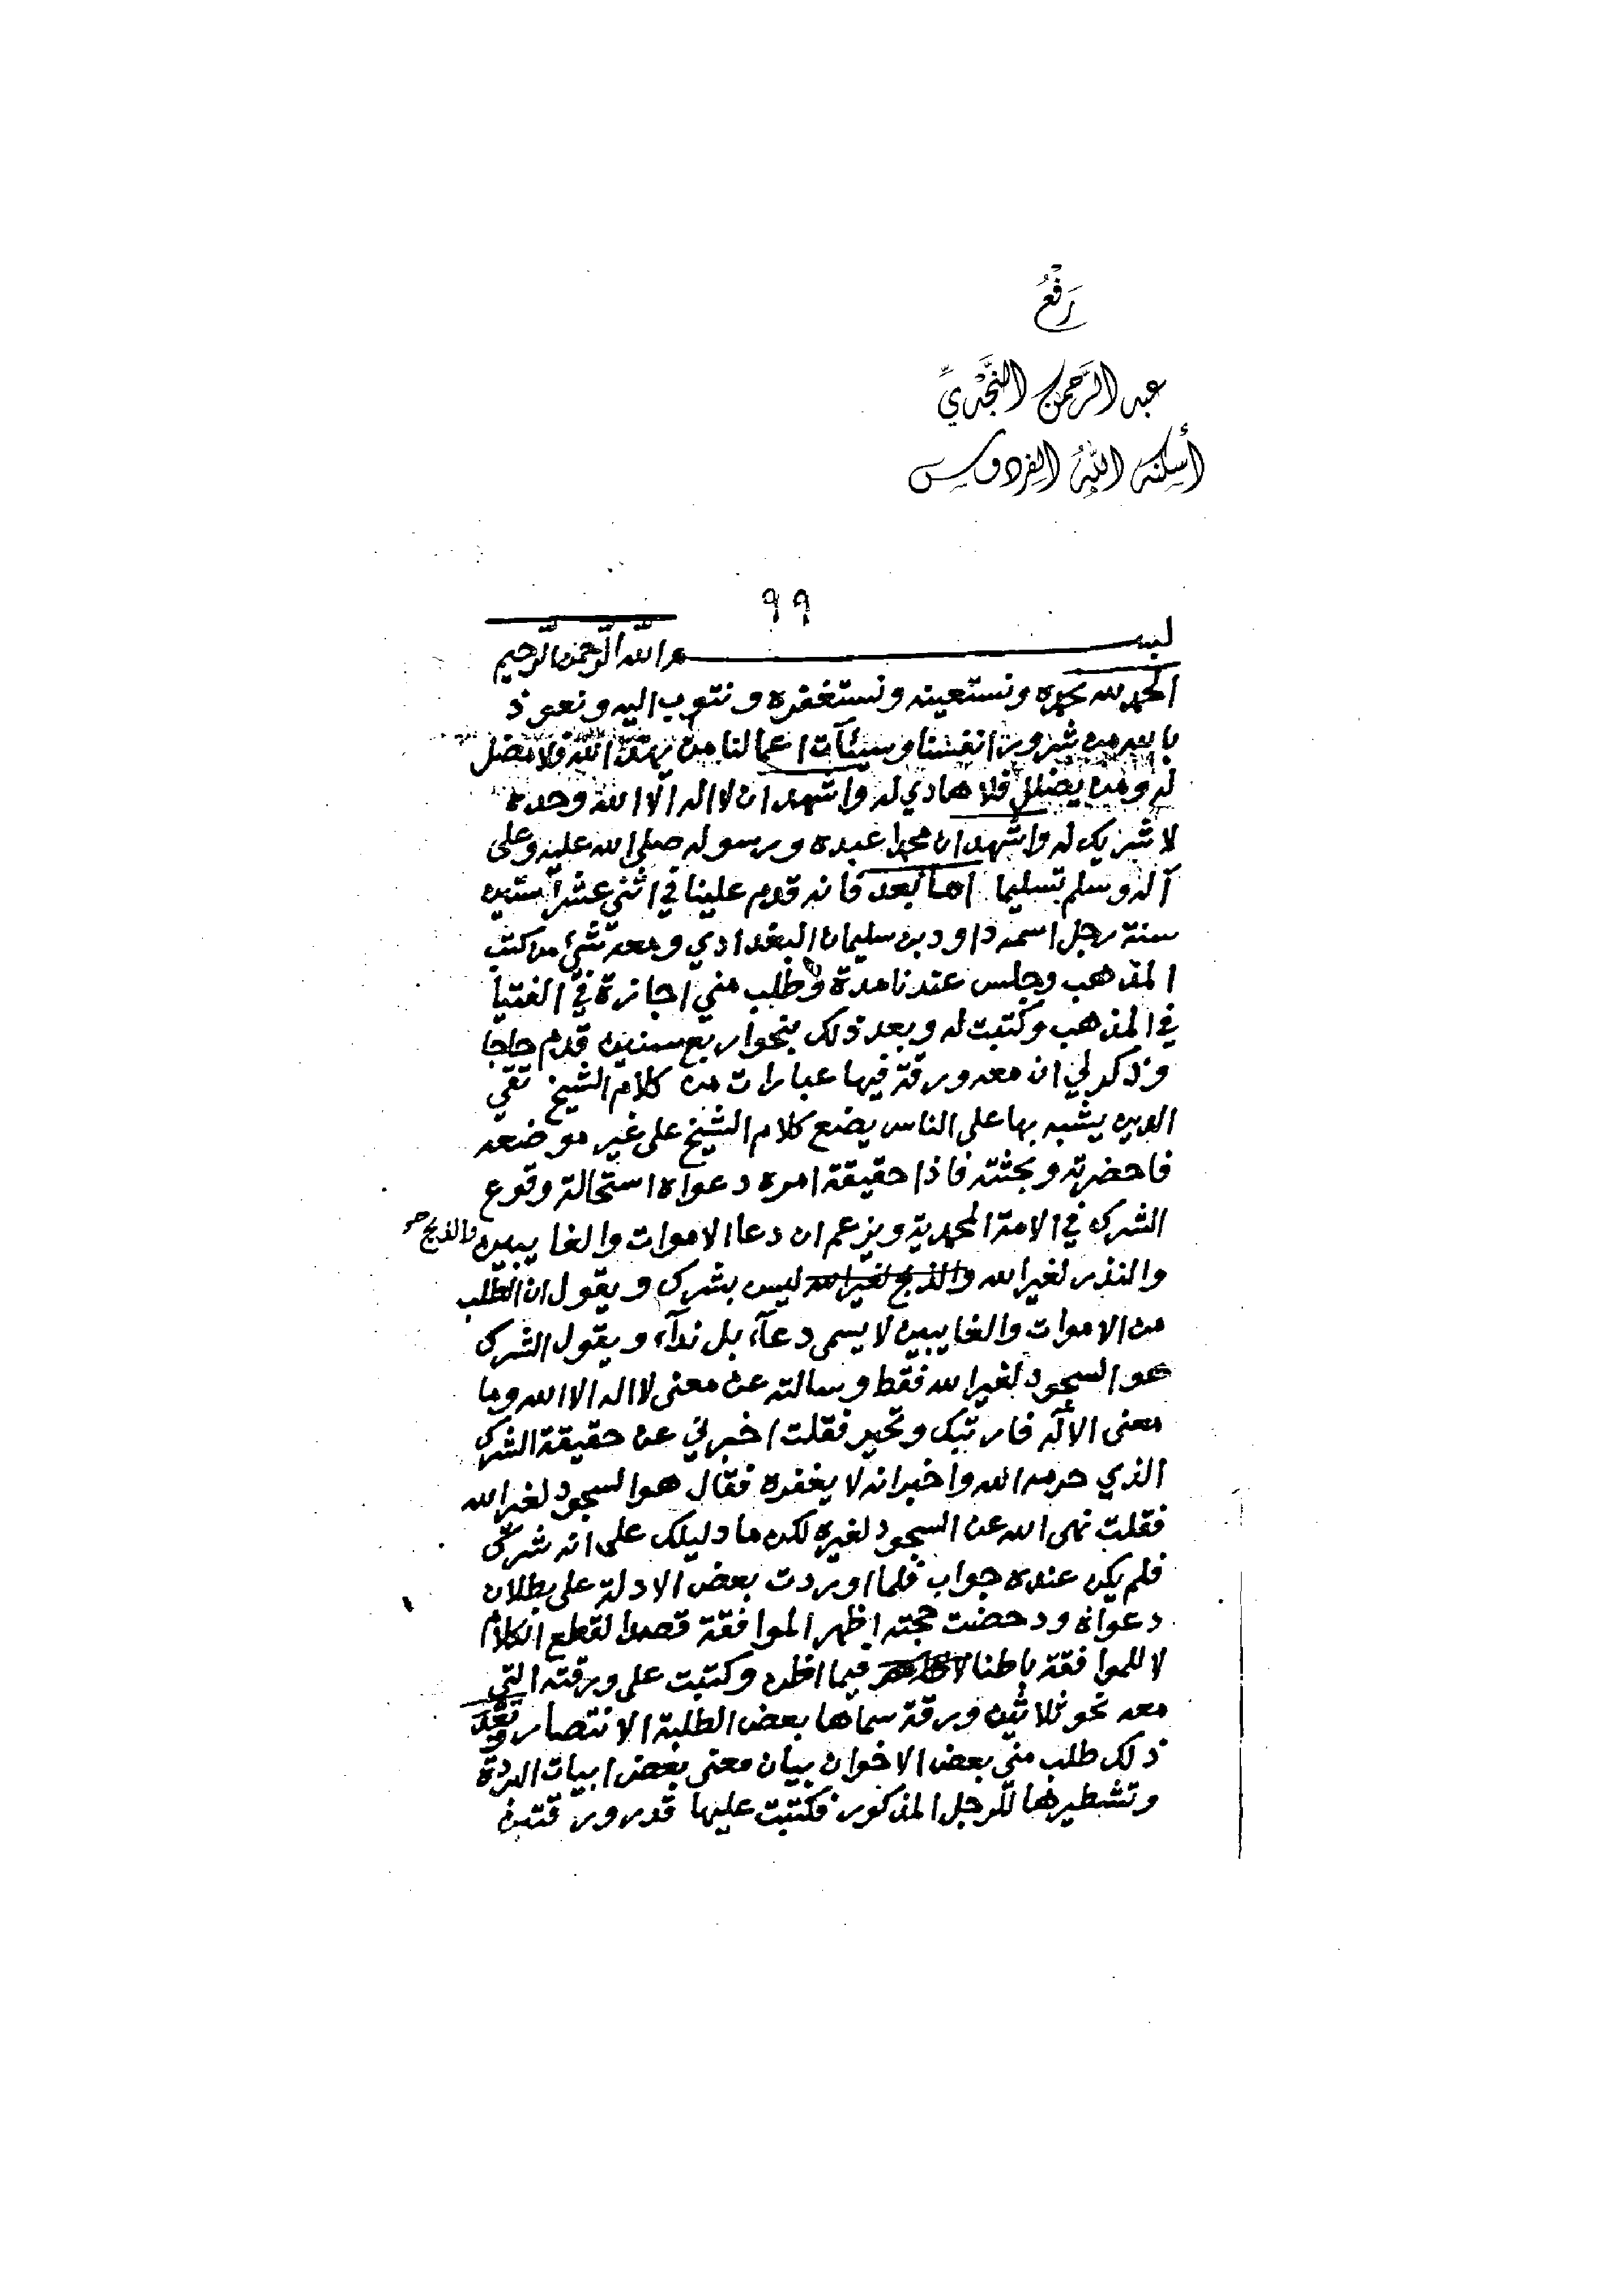 رَفْعُ
عبد الرَّحمن النَّجْديِّ
أسكنه اللهُ الفردوس
٩٩
بسم الله الرحمن الرحيم
الحمد لله نحمده ونستعينه ونستغفره ونتوب اليه ونعوذ
بالله من شرور انفسنا وسيئآت اعمالنا من يهد الله فلا مضل
له ومن يضلل فلا هادي له واشهد ان لا اله الا الله وحده
لا شريك له واشهد ان محمدا عبده ورسوله صلى الله عليه وعلى
آله وسلم تسليما اما بعد فانه قدم علينا في اثني عشر ستين
سنة رجل اسمه داود بن سليمان البغدادي ومعه شئ من كتب
المذهب وجلس عندنا مدة وطلب مني اجازة في الفتيا
في المذهب وكتبت له وبعد ذلك بنحو اربع سنين قدم حاجا
وذكر لي ان معه ورقة فيها عبارات من كلام الشيخ تقي
الدين يشبه بها على الناس يضع كلام الشيخ على غير موضعه
فاحضرته وبحثته فاذا حقيقة امره دعواه استحالة وقوع
الشرك في الامة المحمدية ويزعم ان دعا الاموات والغايبين والذبح
والنذر لغير الله والذبح لغير الله ليس بشرك ويقول ان الطلب
من الاموات والغايبين لا يسمى دعآء بل ندآء ويقول الشرك
هو السجود لغير الله فقط وسالته عن معنى لا اله الا الله وما
معنى الاله فارتبك وتحير فقلت اخبرني عن حقيقة الشرك
الذي حرمه الله واخبر انه لا يغفره فقال هو السجود لغير الله
فقلت نهى الله عن السجود لغيره لكن ما دليلك على انه شرك
فلم يكن عنده جواب فلما اوردت بعض الادلة على بطلان
دعواه ودحضت حجته اظهر الموافقة قصدا لقطع الكلام
لا للموافقة باطنا فيما اظن وكتبت على ورقته التي
معه نحو ثلاثين ورقة سماها بعض الطلبة الانتصار وبعد
ذلك طلب مني بعض الاخوان بيان معنى بعض ابيات البردة
وتشطيرها للرجل المذكور فكتبت عليها قدر ورقتين